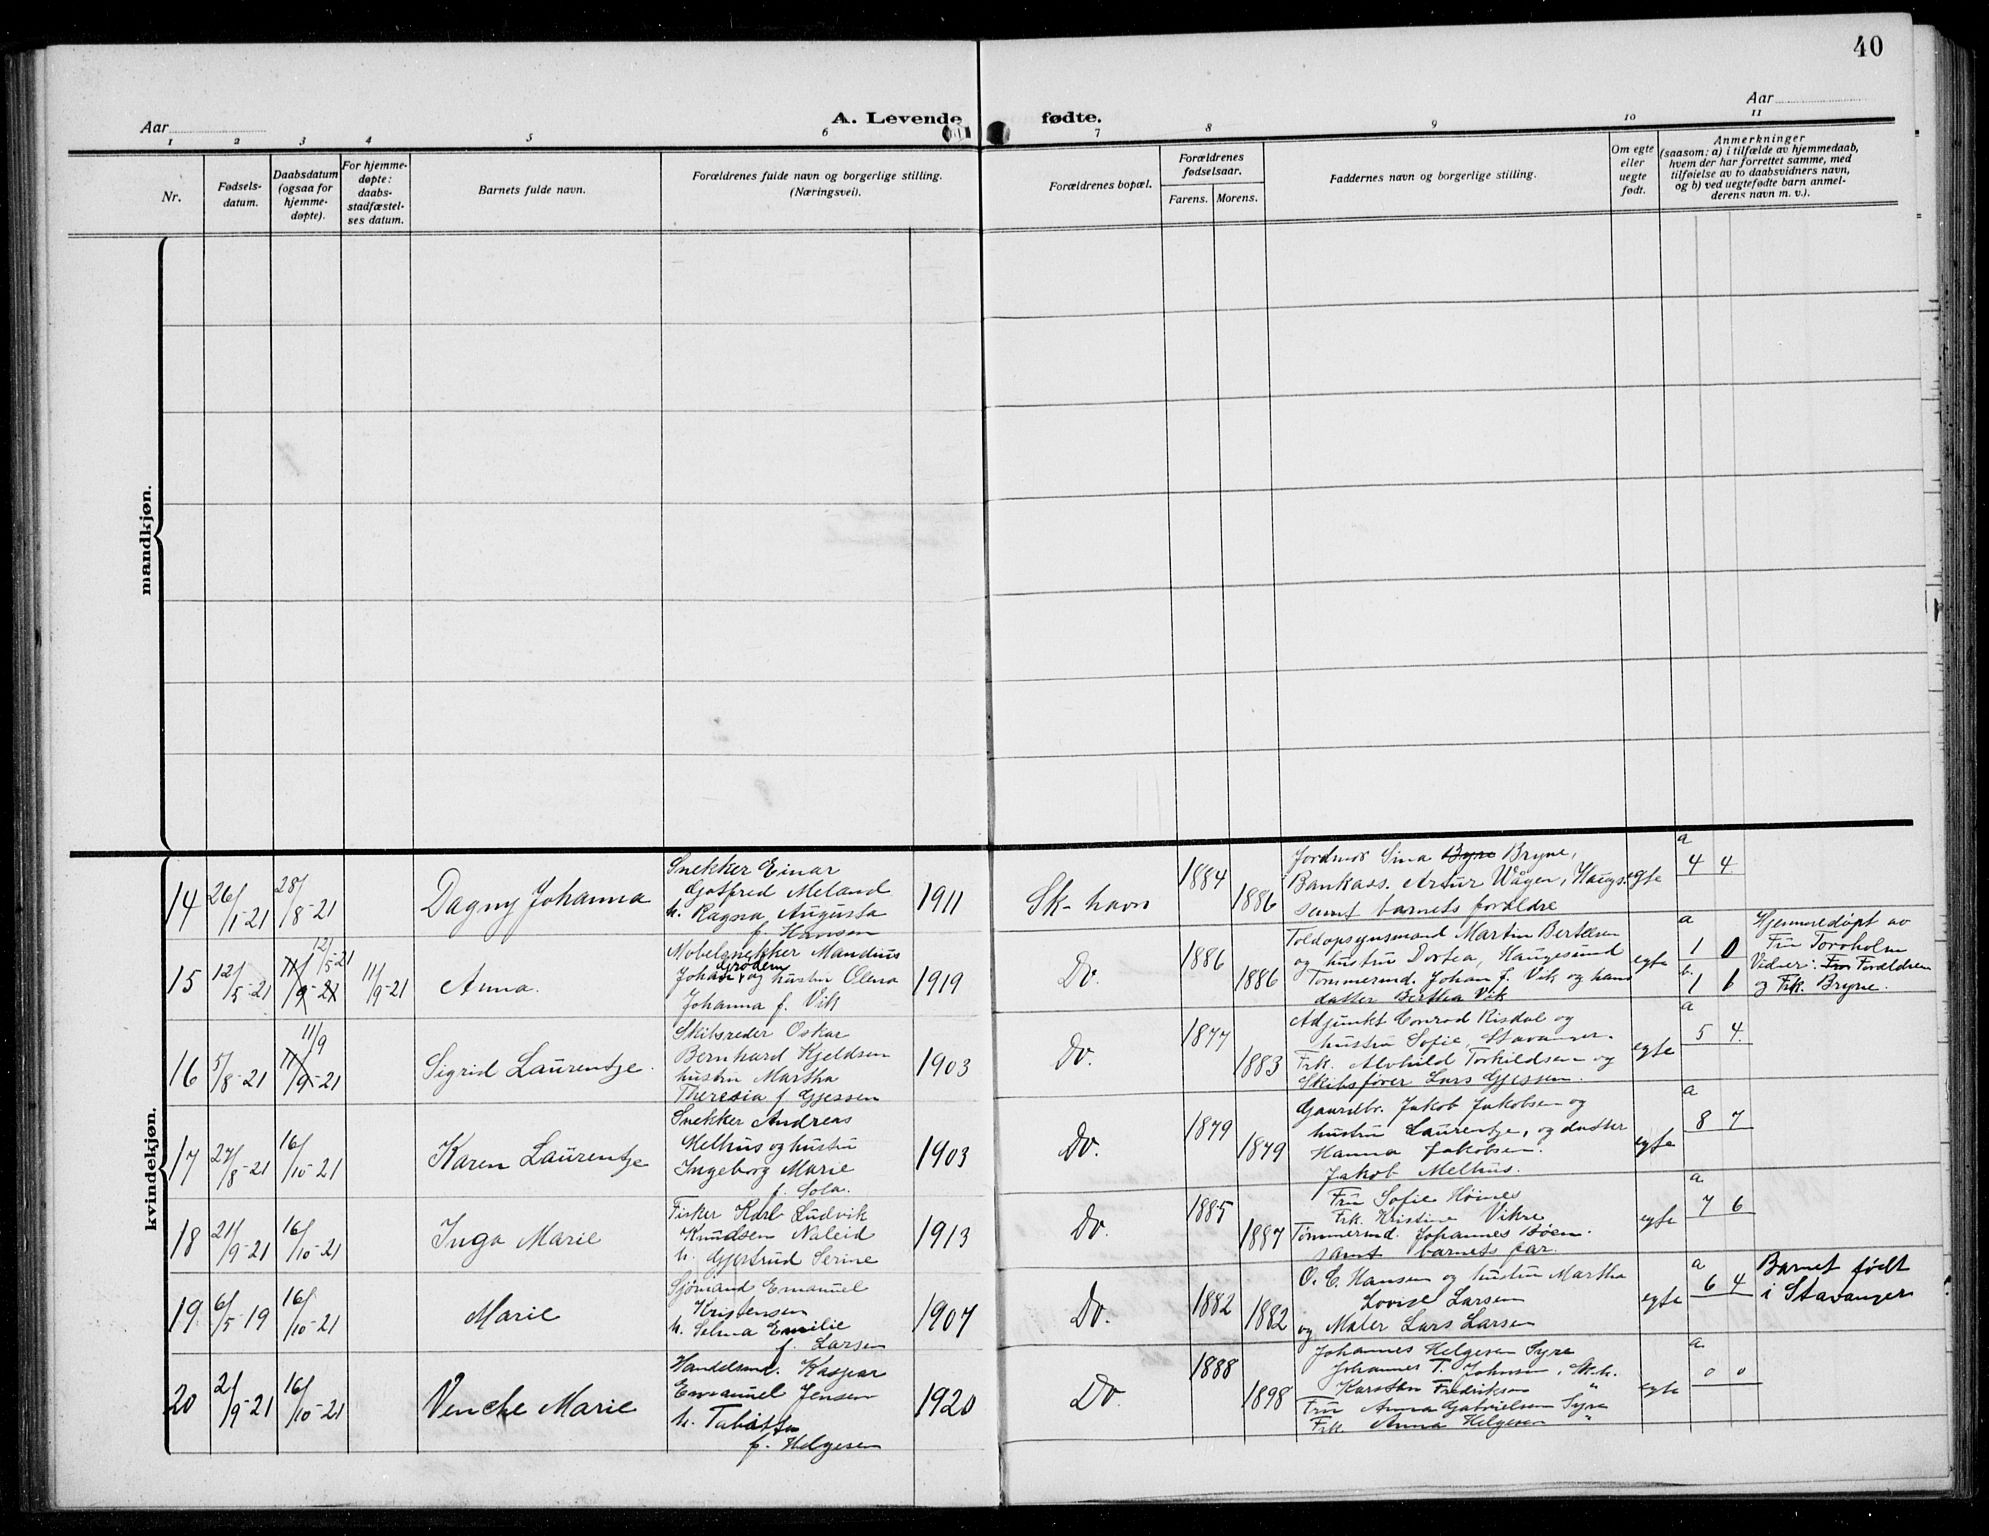 40
Aar
A. Levende fødte.
Aar
1 2 3 4 5 6 7 8 9 10 11
Nr.
Fødsels-
datum.
Daabsdatum
(ogsaa for
hjemme-
døpte).
For hjemme-
døpte:
daabs-
stadfæstel-
ses datum.
Barnets fulde navn.
Forældrenes fulde navn og borgerlige stilling.
(Næringsvei).
Forældrenes bopæl.
Forældrenes
fødselsaar.
Farens. Morens.
Faddernes navn og borgerlige stilling.
Om egte
eller
uegte
født.
Anmerkninger
(saasom: a) i tilfælde av hjemmedaab,
hvem der har forrettet samme, med
tilføielse av to daabsvidners navn,
og b) ved uegtefødte barn anmel-
derens navn m. v.).
mandkjøn.
kvindekjøn.
14 26/1-21 28/8-21 Dagny Johanna
Snekker Einar
Gotfred Meland
h. Ragna Augusta
f. Hansen
1911 Sk-havn 1884 1886
Jordmor Sina Byre Bryne,
Bankass. Artur Vågen, Haugs.
samt barnets foreldre
egte a 4 4
15 12/5-21 11/9-21 12/5-21 11/9-21 Anna.
Møbelsnekker Mandius
Johan Grødem og hustru Olena
Johanna f. Vik
1919 Do. 1886 1886
Toldopsynsmand Martin Bertelsen
og hustru Dortea, Haugesund
Tømmermd. Johan J. Vik og hans
datter Bertha Vik
egte a 1 0 b. 1 1
Hjemmedøpt av
Fru Torvholm
Vidner: Fru Foreldren
og Frk. Bryne.
16 5/8-21 11/9 11/9-21 Sigrid Laurentze.
Skibsreder Oskar
Bernhard Kjeldsen
hustru Martha
Theresia f. Gjessen
1903 Do. 1877 1883
Adjunkt Conrad Risdal og
hustru Sofie, Stavanger.
Frk. Alvhild Torkildsen og
Skibsfører Lars Gjessen.
egte a 5 4.
17 27/8-21 16/10-21 Karen Laurentze
Snekker Andreas
Melhus og hustru
Ingeborg Marie
f. Sola.
1903 Do. 1879 1879
Gaardbr. Jakob Jakobsen og
hustru Laurentze, og datter
Hanna Jakobsen.
Jakob Melhus.
egte a 8 7
18 21/9-21 16/10-21 Inga Marie
Fisker Karl Ludvik
Knudsen Naleid
h. Gjertrud Serine
1913 Do. 1885 1887
Fru Sofie Høines
Frk. Kristine Vikre
Tømmermd. Johannes Bøen.
samt barnets far.
egte a. 7 6
19. 6/5-19 16/10-21 Marie
Sjømand Emanuel
Kristensen
h. Selma Emilie
f. Larsen
1907 Do. 1882 1882
O. C. Hansen og hustru Martha
Lovise Larsen
og Maler Lars Larsen
egte a 6 4
Barnet født
i Stavanger
20 2/9-21 16/10-21 Venche Marie
Handelsmd. Kaspar
Emanuel Jensen
h. Tabitta
f. Helgesen
1920 Do 1888 1898
Johannes Helgesen Syre
Johannes T. Johnsen, Sk.h.
Karsten Fredriksen "
Fru Anna Gabrielsen Syre
Frk. Anna Helgesen "
egte a 0 0